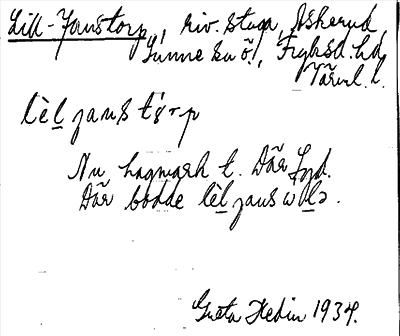 Lill-Janstorp, riv. stuga, Askerud,
Sunne sn ö., Fryksd. hd,
Värml. l.
lè̱l jans tɷrp
Nu hagmark t. Där
Där bodde lè̱l jans
Greta Hedin 1934.